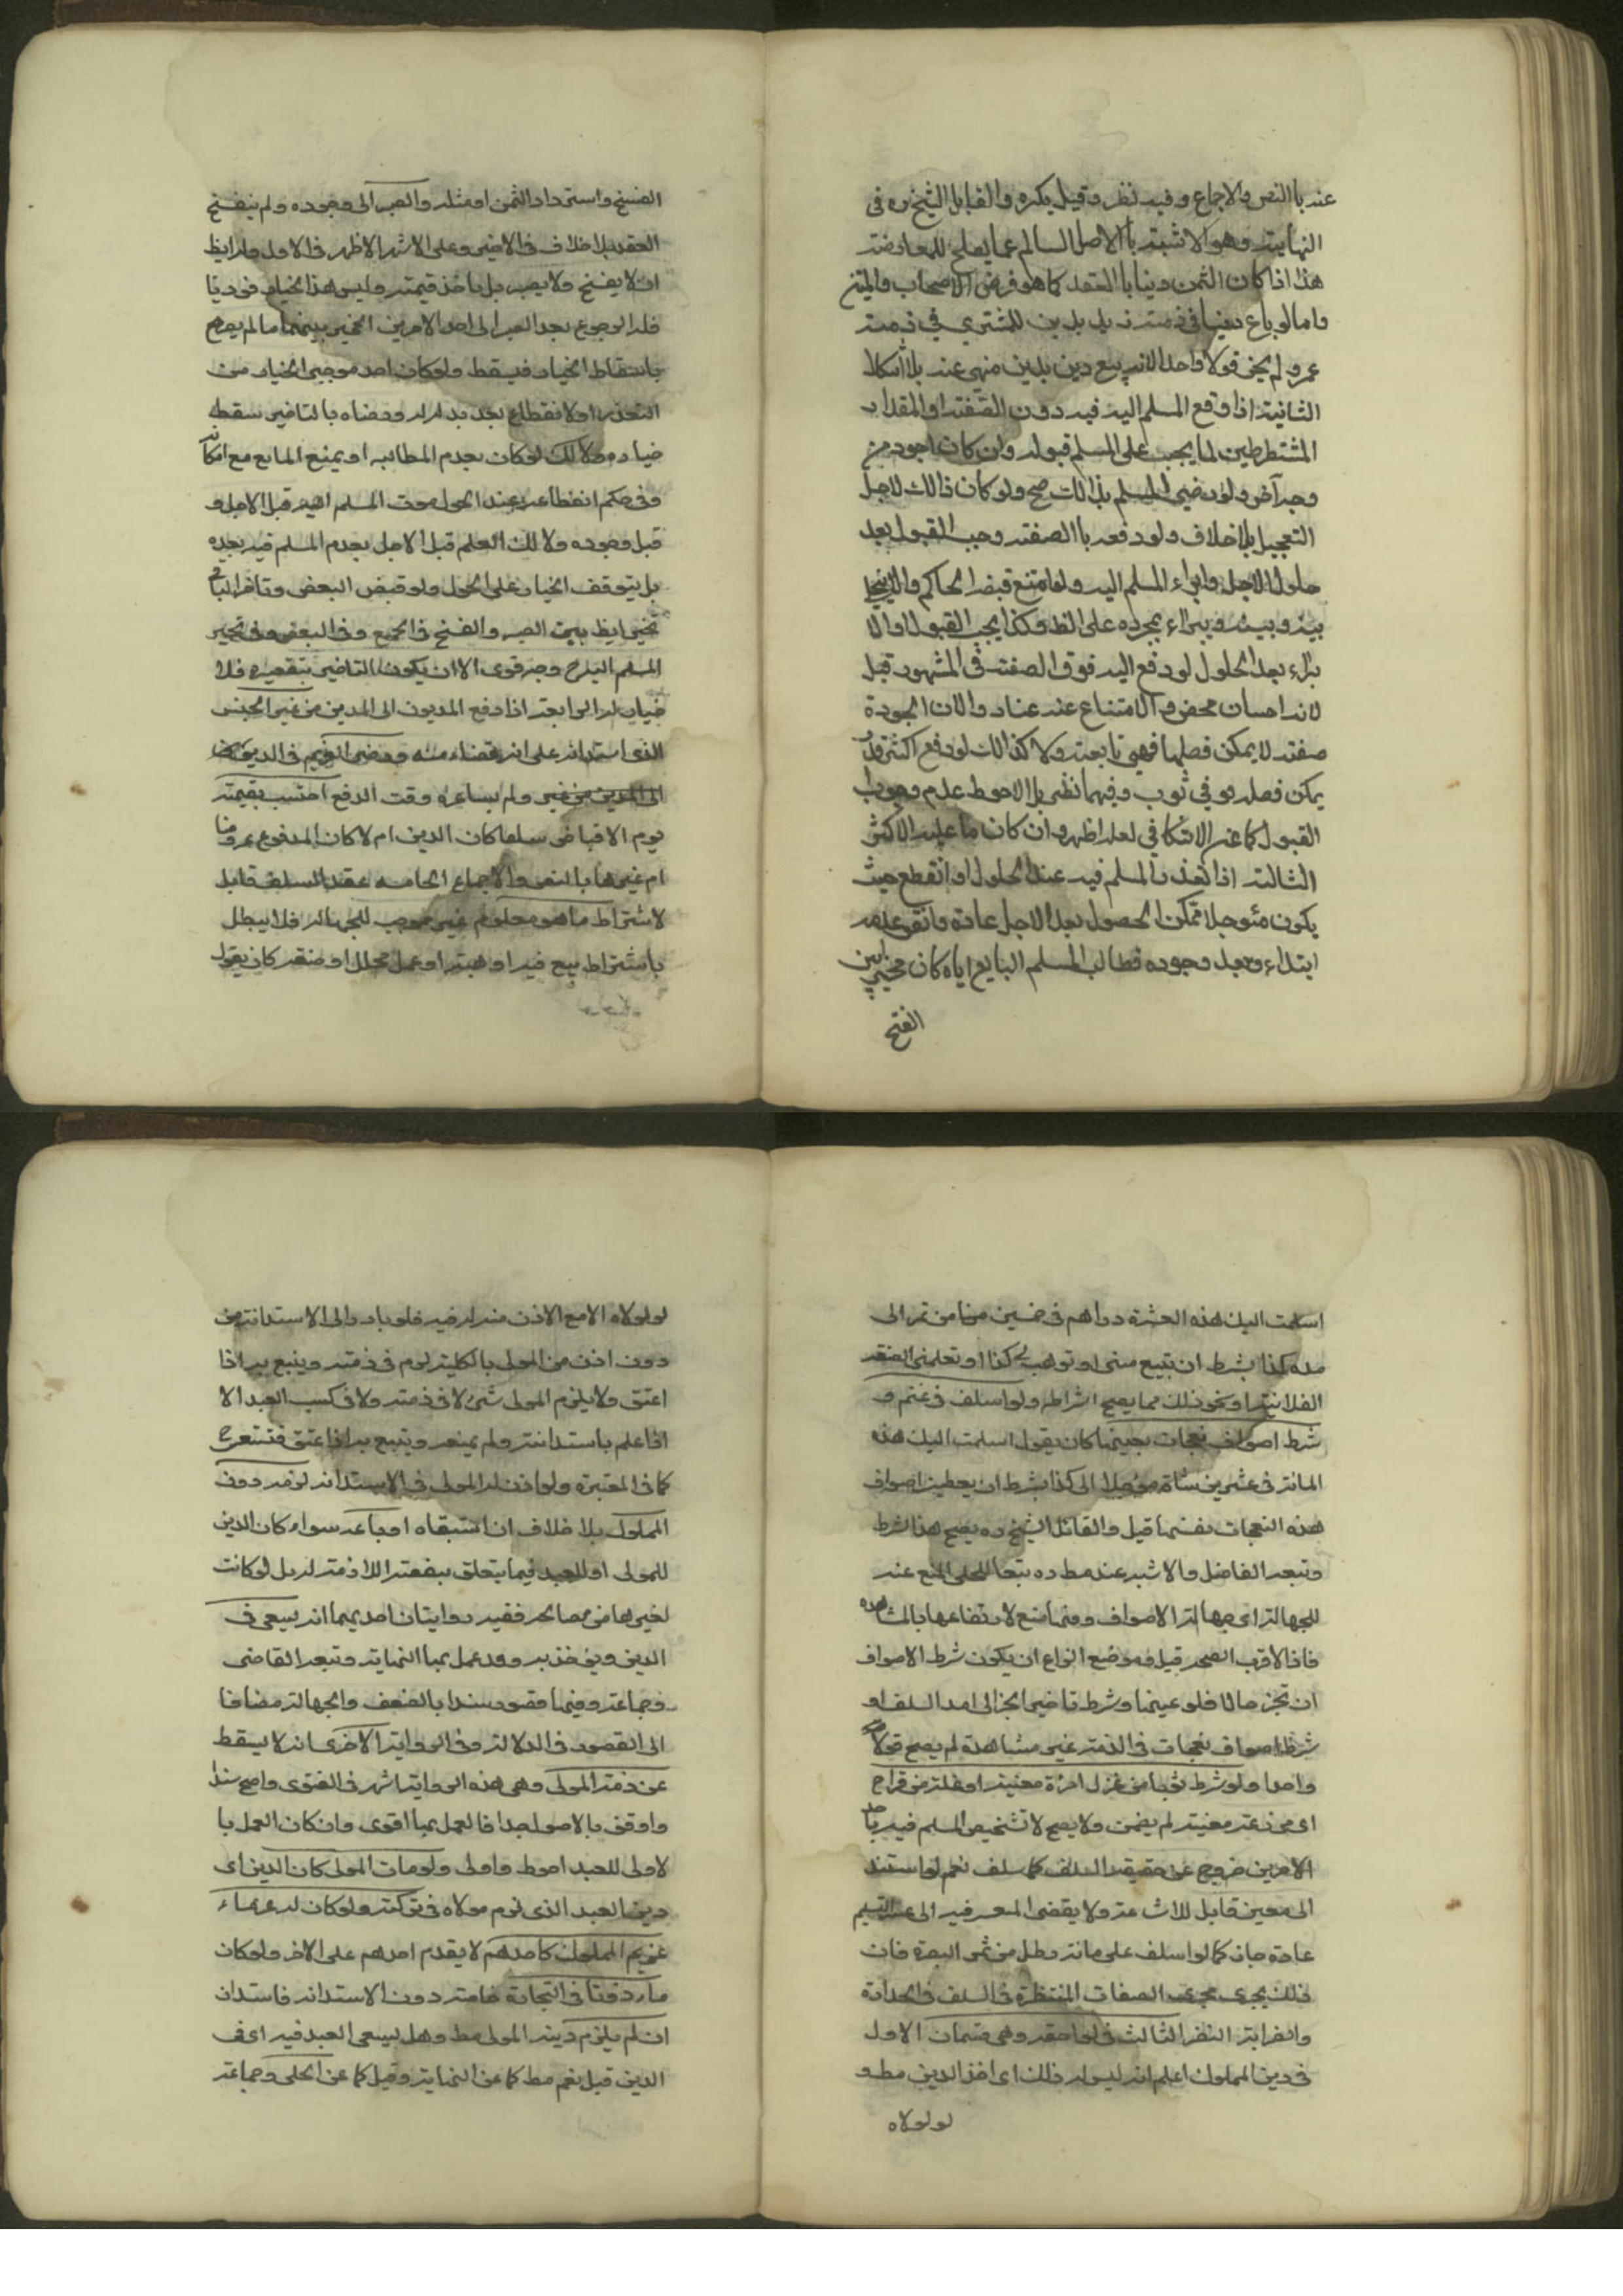 عنه بالنص والاجماع وفيه نظر وقيل يكره والقايل الشيخ ره فى
النهاية وهو الاشبه بالاصل السالم عما يصلح للمعارضة
هذا اذا كان الثمن دينا بالعقد كما هو فرض الاصحاب والمتن
واما لو باع دينا فى ذمة زيد بدين للمشتري في ذمة
عمرو لم يجز قولا واحدا لانه بيع دين بدين منهى عنه بلا اشكال
الثانية اذا وقع المسلم اليه فيه دون الصفة او المقدار
المشترطين لما يجب على المسلم قبوله وان كان اجود من
وجه آخر ولو رضى المسلم بذالك صح ولو كان ذالك لاجل
التعجيل بلا خلاف ولو دفعه بالصفة وجب القبول بعد
حلول الاجل وابراء المسلم اليه ولو امتنع قبضه الحاكم والا يخلى
بينه وبينه ويبراء بمجرده على الظ وكذا يجب القبول والا
براء بعد الحلول لو دفع اليه فوق الصفة فى المشهور قيل
لانه احسان محض والامتناع عنه عناد والان الجودة
صفة لا يمكن فصلها فهي تابعة ولا كذالك لو دفع اكثر
يمكن فصله ولو في ثوب وفيهما نظر بل الاحوط عدم وجوب
القبول كما عن الاسكافي لعله اظهر وان كان ما عليه الاكثر
الثالثة اذا تعذر المسلم فيه عند الحلول او انقطع حيث
يكون مئوجلا ممكن الحصول بعد الاجل عادة واتفق عدمه
ابتداء وبعد وجوده فطالب المسلم البايع اياه كان مخيرا بين
الفسخ
الفسخ واسترداد الثمن او مثله والصبر الى وجوده ولم ينفسخ
العقد بلا خلاف فى الاخير وعلى الاشهر الاظهر فى الاول وله ايظ
ان لا يفسخ ولا يصبر بل ياخذ قيمته وليس هذا الخيار فوريا
فله الرجوع بعد الصبر الى احد الامرين المخير بينهما ما لم يصرح
باسقاط الخيار فيسقط ولو كان احد موجبى الخيار من
التعذر او الانقطاع بعد بذله له ورضاه بالتاخير سقط
خياره ولا كذلك لو كان بعدم المطالبه او يمنع المانع مع امكانه
وفى حكم انقطاعه عند الحلول موت المسلم اليه قبل الاجل و
قبل وجوده ولا لك العلم قبل الاجل بعدم المسلم فيه بعده
بل يتوقف الخيار على الحلول ولو قبض البعض وتاخر الباقى
تخير ايظ بين الصبر والفسخ فى الجميع وفى البعض وفى تخير
المسلم اليه ح وجه قوى الا ان يكون التاخير بتقصيره فلا
خيار له الرابعة اذا دفع المديون الى المدين من غير الجنس
الذى استدانه على انه قضاء منه ورضى الغريم فى الدين
الى المدين من غير ولم يساعره وقت الدفع احتسب بقيمته
يوم الاقباض سلعا كان الدين ام لا كان المدفوع عروضا
ام غيرها بالنص والاجماع الخامسه عقد السلف قابل
لاشتراط ما هو معلوم غير موجب للجهاله فلا يبطل
باشتراط بيع فيه او هبة او عمل محلل او صنعة كان يقول
اسلمت اليك هذه العشرة دراهم فى خمسين منا من تمر الى
مده كذا بشرط ان تبيع منى او توهب لى كذا او تعلمنى الصنعة
الفلانية او نحو ذلك مما يصح اشراطه ولو اسلف فى غنم و
شرط اصواف نعجات بعينها كان يقول اسلمت اليك هذه
المائة فى عشرين شاة مؤجلا الى كذا بشرط ان يعطين اصواف
هذه النعجات بعينها قيل والقائل الشيخ ره يصح هذا الشرط
وتبعه الفاضل والاشبه عند مط ره تبعا للحلى المنع عنه
للجهالة اى جهالة الاصواف ومنها منع لارتفاعها بالمشاهده
فاذا الاقرب الصحه قيل وموضع النزاع ان يكون شرط الاصواف
ان تجز حالا فلو عينها وشرط تاخير الجز الى امد السلف او
شرط اصواف نعجات فى الذمة غير مشاهدة لم يصح قولا
واحدا ولو شرط ثوبا من غزل امرأة معينة او غلة من قراح
اى مزرعة معينة لم يضمن ولا يصح لا تشخيص المسلم فيه باحد
الامرين خروج عن حقيقة السلف كما سلف نعم لو استند
الى معين قابل للاشاعة ولا يقضى المعسر فيه الى عسر التسليم
عادة جاز كما لو اسلف على مائة رطل من تمر البصرة فان
ذلك يجرى مجرى الصفات المنتظرة فى السلف فى الحداثة
والصرابة النظر الثالث فى لواحقه وهى قسمان الاول
فى دين المملوك اعلم انه ليس له ذلك اى اخذ الدين مط و
لو لولاه
لو لولاه الا مع الاذن منه له فيه فلو بادر الى الاستدانة من
دون اذن من المولى بالكلية لزم فى ذمته ويتبع به اذا
اعتق ولا يلزم المولى شئ لا فى ذمته ولا فى كسب العبد الا
اذا علم باستدانته ولم يمنعه ويتبع به اذا عتق فتستعرح
كما فى المعتبرة ولو اذن له المولى فى الاستدانه لزمه دون
المملوك بلا خلاف ان استبقاه او باعه سواء كان الدين
للمولى او للعبد فيما يتعلق بنفقته اللازمة له بل لو كانت
لغيرها من مصالحه ففيه روايتان احديهما انه يسعى فى
الدين ويوخذ به وورد عمل بها النهاية وتبعه القاضى
وجماعة وفيها قصور سندا بالضعف والجهالة مضافا
الى القصور فى الدلالة وفى الرواية الاخرى انه لا يسقط
عن ذمة المولى وهى هذه الرواية اشهر فى الفتوى واصح سندا
واوفق بالاصول جدا فالعمل بها اقوى وان كان العمل با
لاولى للعبد احوط واولى ولو مات المولى كان الدين اى
دين العبد الذى لزم مولاه فى تركته ولو كان له غرماء
غريم المملوك كاحدهم لا يقدم احدهم على الاخر ولو كان
ماذونا فى التجارة خاصة دون الاستدانه فاستدان
ان لم يلزم دينه المولى مط وهل يسعى العبد فيه اى فى
الدين قيل نعم مط كما عن النهاية وقيل كما عن الحلى وجماعة